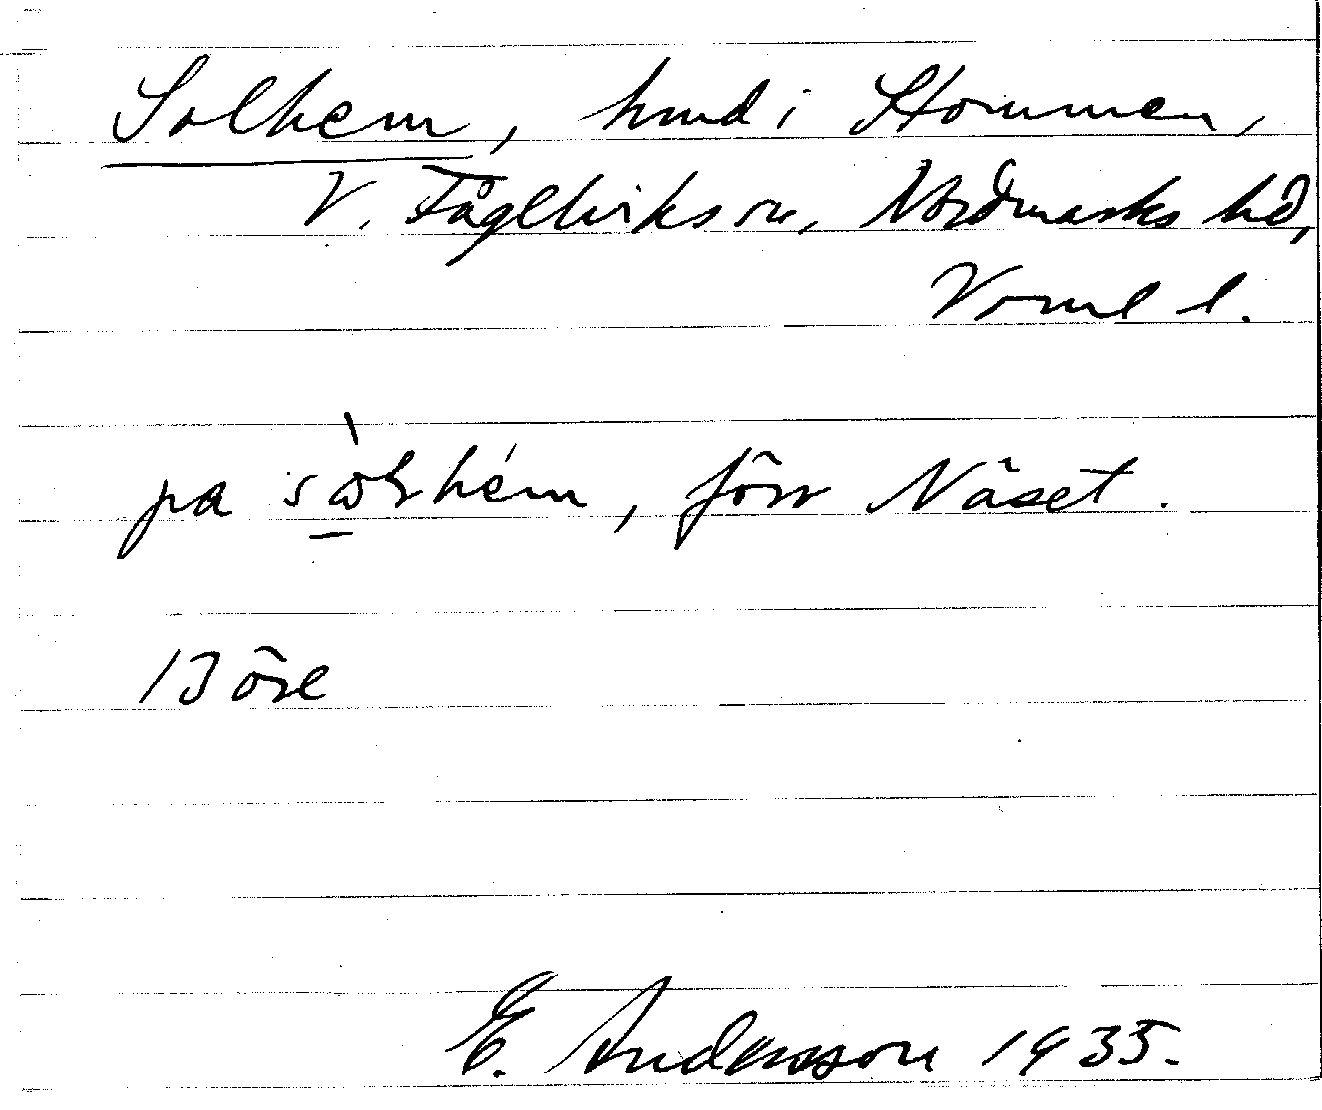 Solhem, hmd i Stommen,
V. Fågelviks sn, Nordmarks hd,
Vrml l.
pa hem, förr Näset.
13 öre
E. Andersson 1935.